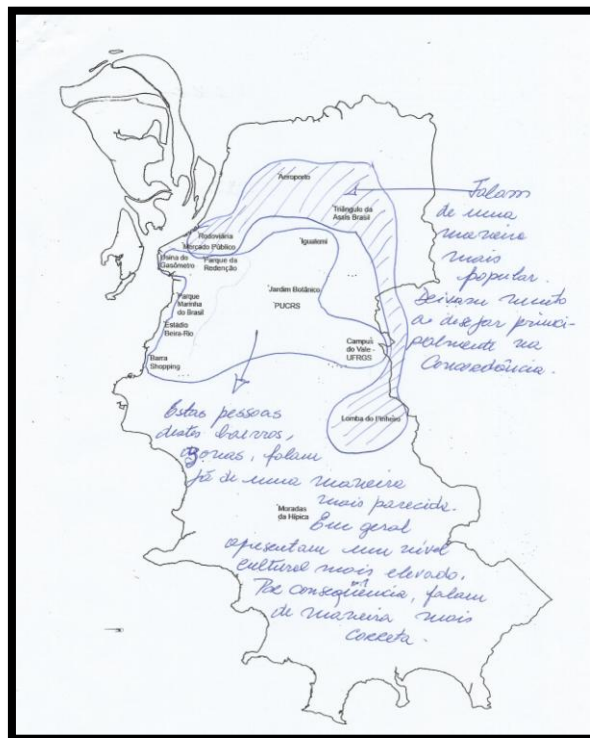 Aeroporto
Triângulo da
Assis Brasil
Rodoviária
Mercado Público
Iguatemi
Usina do
Gasômetro
Parque da
Redenção
Jardim Botânico
PUCRS
Parque
Marinha
do Brasil
Estádio
Beira-Rio
Campus
do Vale -
UFRGS
Barra
Shopping
Lomba do Pinheiro
Moradas
da Hípica
Falam
de uma
maneira
mais
popular.
Deixam muito
a desejar princi-
palmente na
Concordância.
Estas pessoas
destes bairros,
zonas, falam
já de uma maneira
mais parecida.
Em geral
apresentam um nível
cultural mais elevado.
Por conseqüência, falam
de maneira mais
correta.